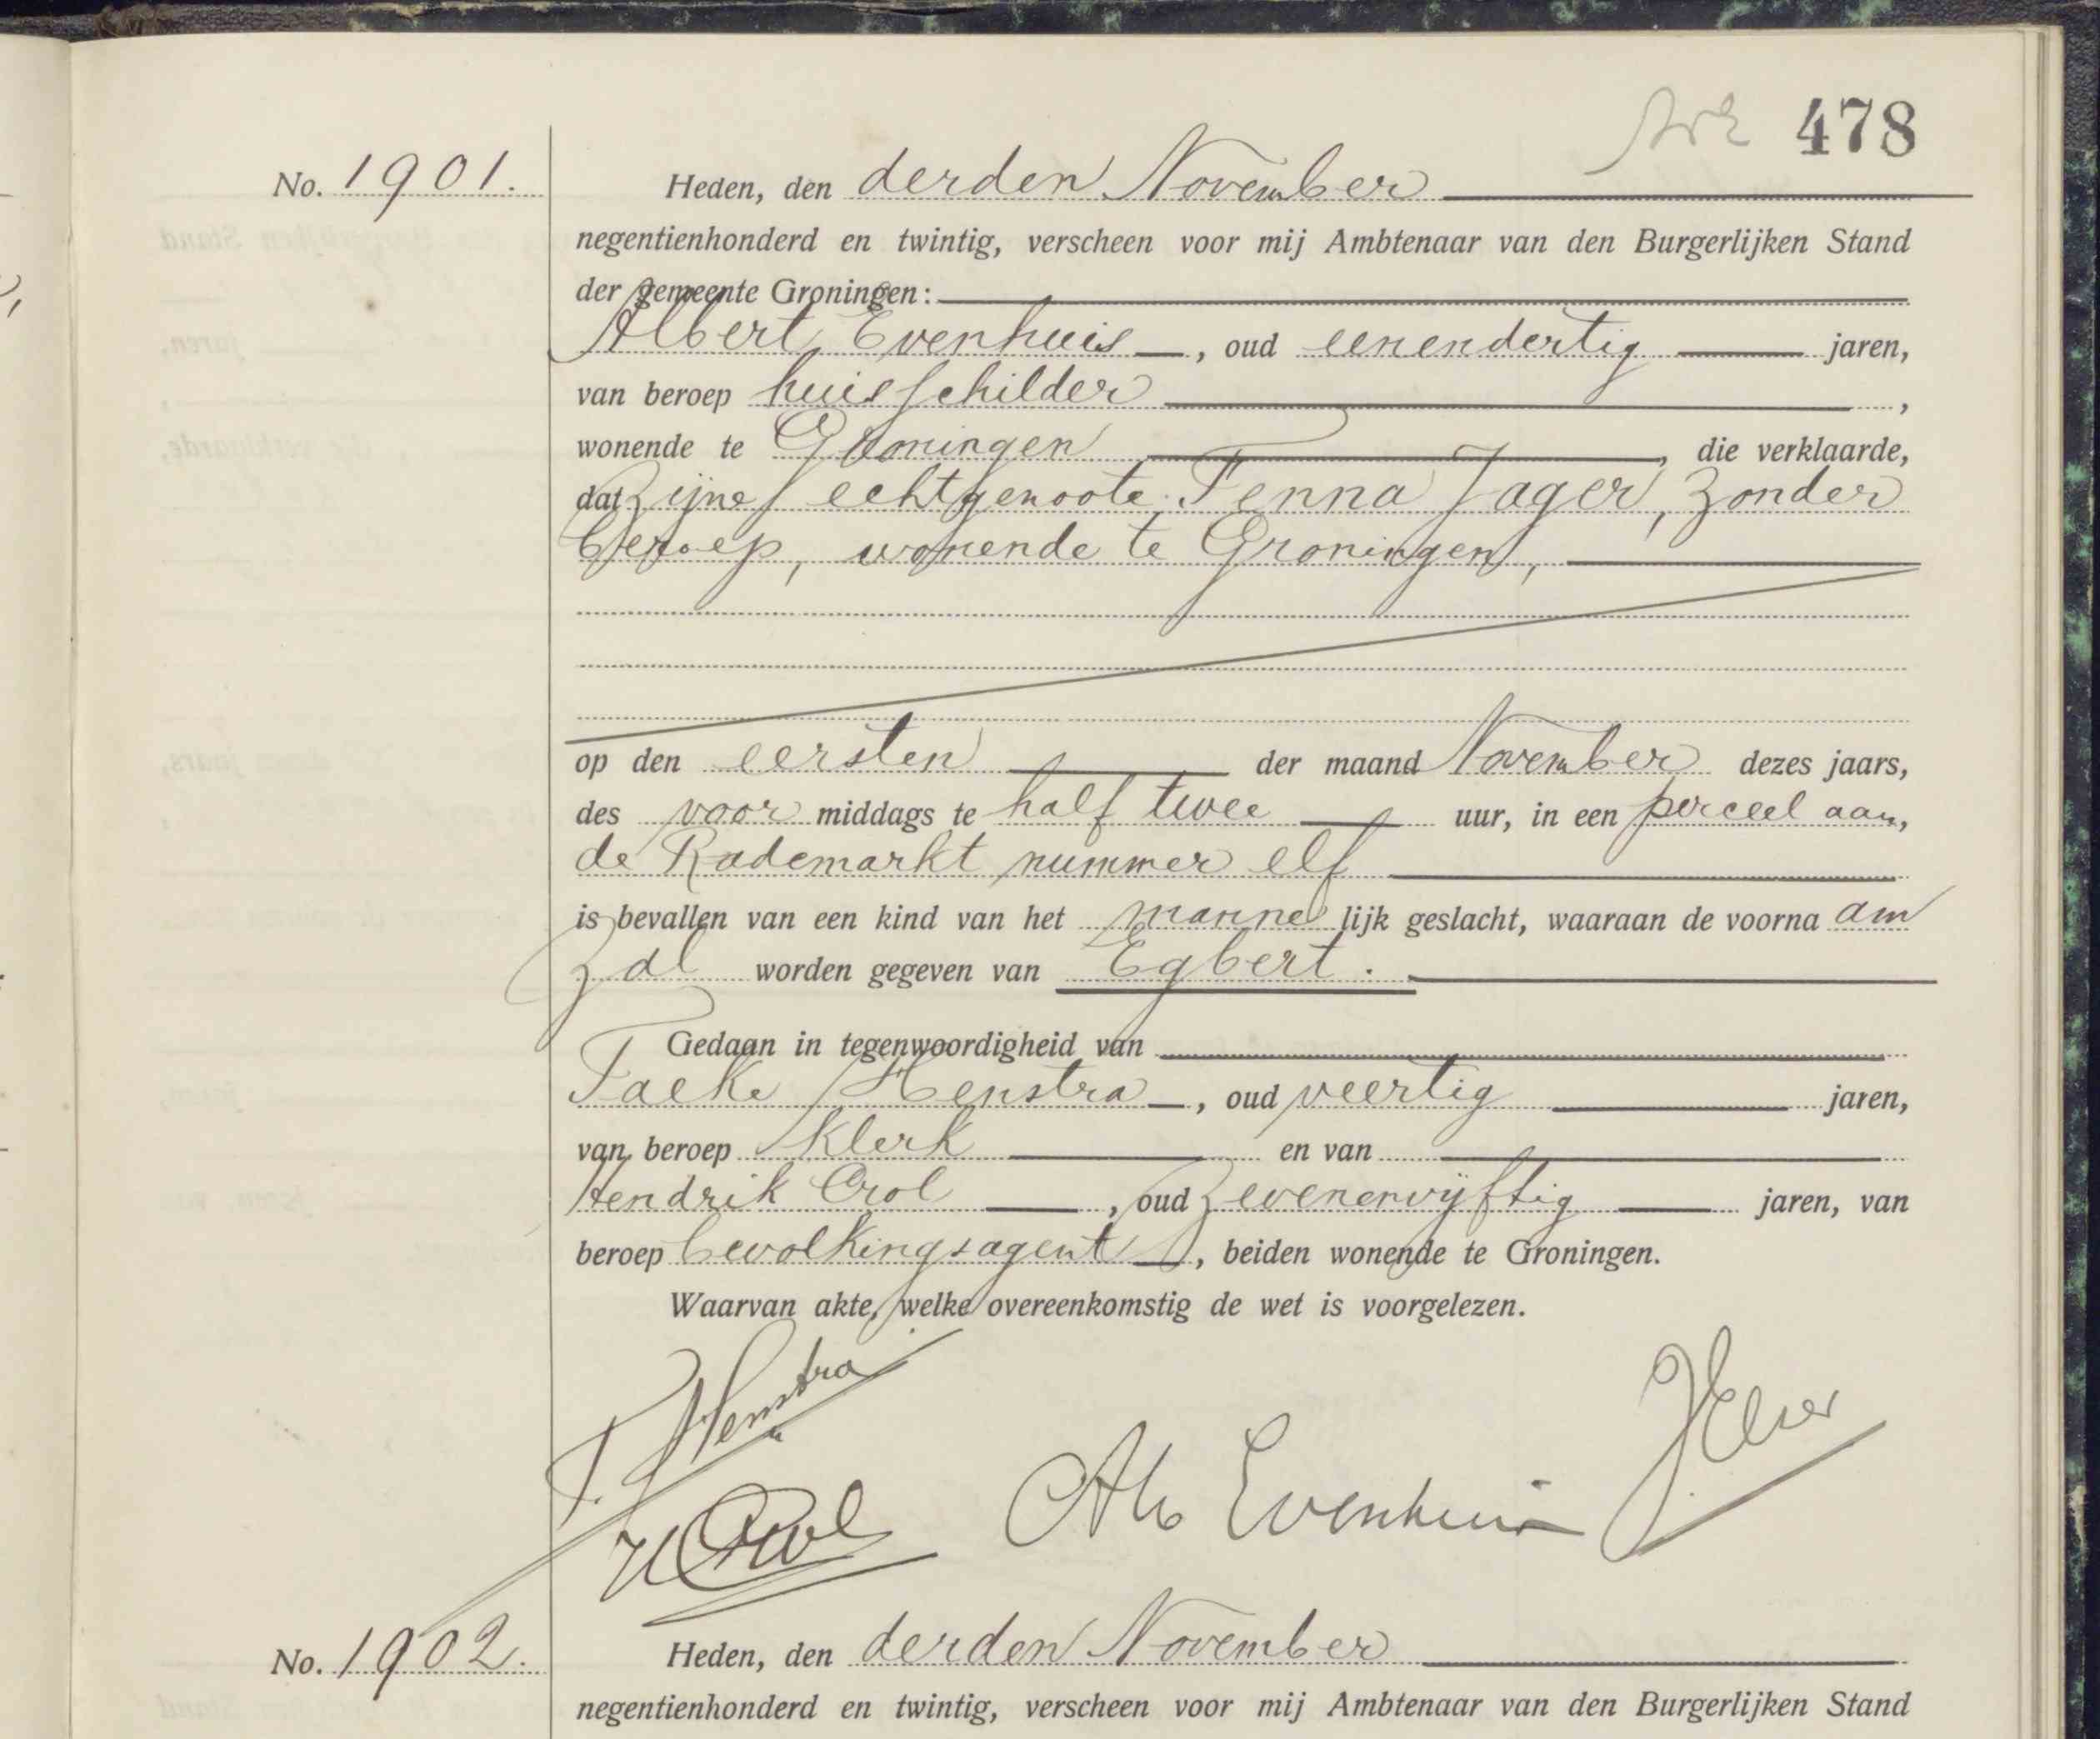 478
No. 1901.
Heden, den derden November
negentienhonderd en twintig, verscheen voor mij Ambtenaar van den Burgerlijken Stand
der gemeente Groningen:
Albert Evenhuis, oud eenendertig jaren,
van beroep huisschilder,
wonende te Groningen, die verklaarde,
dat zijne echtgenoote Fenna Jager, zonder
beroep, wonende te Groningen,
op den eersten der maand November dezes jaars,
des voor middags te half twee uur, in een perceel aan,
de Rademarkt nummer elf
is bevallen van een kind van het manne lijk geslacht, waaraan de voorna am
zal worden gegeven van Egbert.
Gedaan in tegenwoordigheid van
Taeke Henstra, oud veertig jaren,
van beroep klerk en van
Hendrik Crol, oud zevenenvijftig jaren, van
beroep bevolkingsagent, beiden wonende te Groningen.
Waarvan akte, welke overeenkomstig de wet is voorgelezen.
T. Henstra
H Crol Alb Evenhuis
No. 1902.
Heden, den derden November
negentienhonderd en twintig, verscheen voor mij Ambtenaar van den Burgerlijken Stand